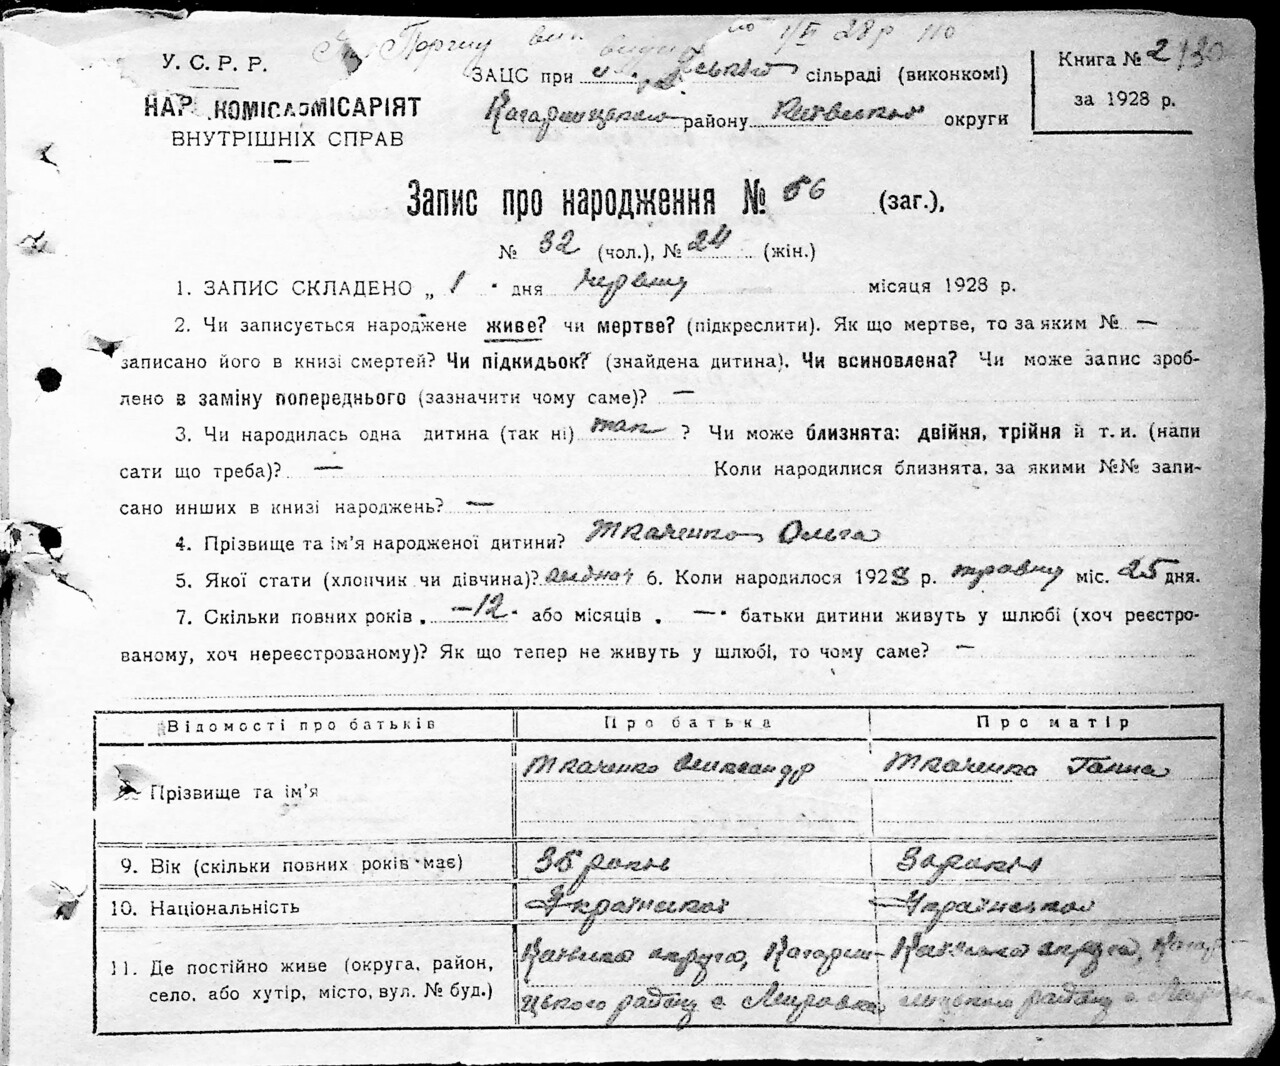 У. С. Р. Р.
ЗАЦС при сільраді (виконкомі)
Книга № 2
НАР. КОМІСАРІЯТ
Кагарлицького району Київської округи
за 1928 р.
ВНУТРІШНІХ СПРАВ
Запис про народження № 56 (заг.),
№ 32 (чол.), № 24 (жін.)
1. ЗАПИС СКЛАДЕНО „ 1 " дня червня місяця 1928 р.
2. Чи записується народжене живе? чи мертве? (підкреслити). Як що мертве, то за яким № —
записано його в книзі смертей? Чи підкидьок? (знайдена дитина). Чи всиновлена? Чи може запис зроб-
лено в заміну попереднього (зазначити чому саме)? —
3. Чи народилась одна дитина (так ні) так ? Чи може близнята: двійня, трійня й т. и. (напи
сати що треба)? — Коли народилися близнята, за якими №№ запи-
сано инших в книзі народжень? —
4. Прізвище та ім'я народженої дитини? Ткаченко Ольга
5. Якої стати (хлопчик чи дівчина)? 6. Коли народилося 1928 р. травня міс. 25 дня.
7. Скільки повних років „ —12 " або місяців „ — " батьки дитини живуть у шлюбі (хоч реєстро-
ваному, хоч нереєстрованому)? Як що тепер не живуть у шлюбі, то чому саме? —
Відомості про батьків Про батька Про матір
Прізвище та ім'я Ткаченко Олександр Ткаченко Ганна
9. Вік (скільки повних років має) 35 років 30 років
10. Національність Української Української
11. Де постійно живе (округа, район,
село, або хутір, місто, вул. № буд.)
Київська округа, Кагарли-
цького району с Мирівка
Київська округа, Кагар-
лицького району с Мирівка